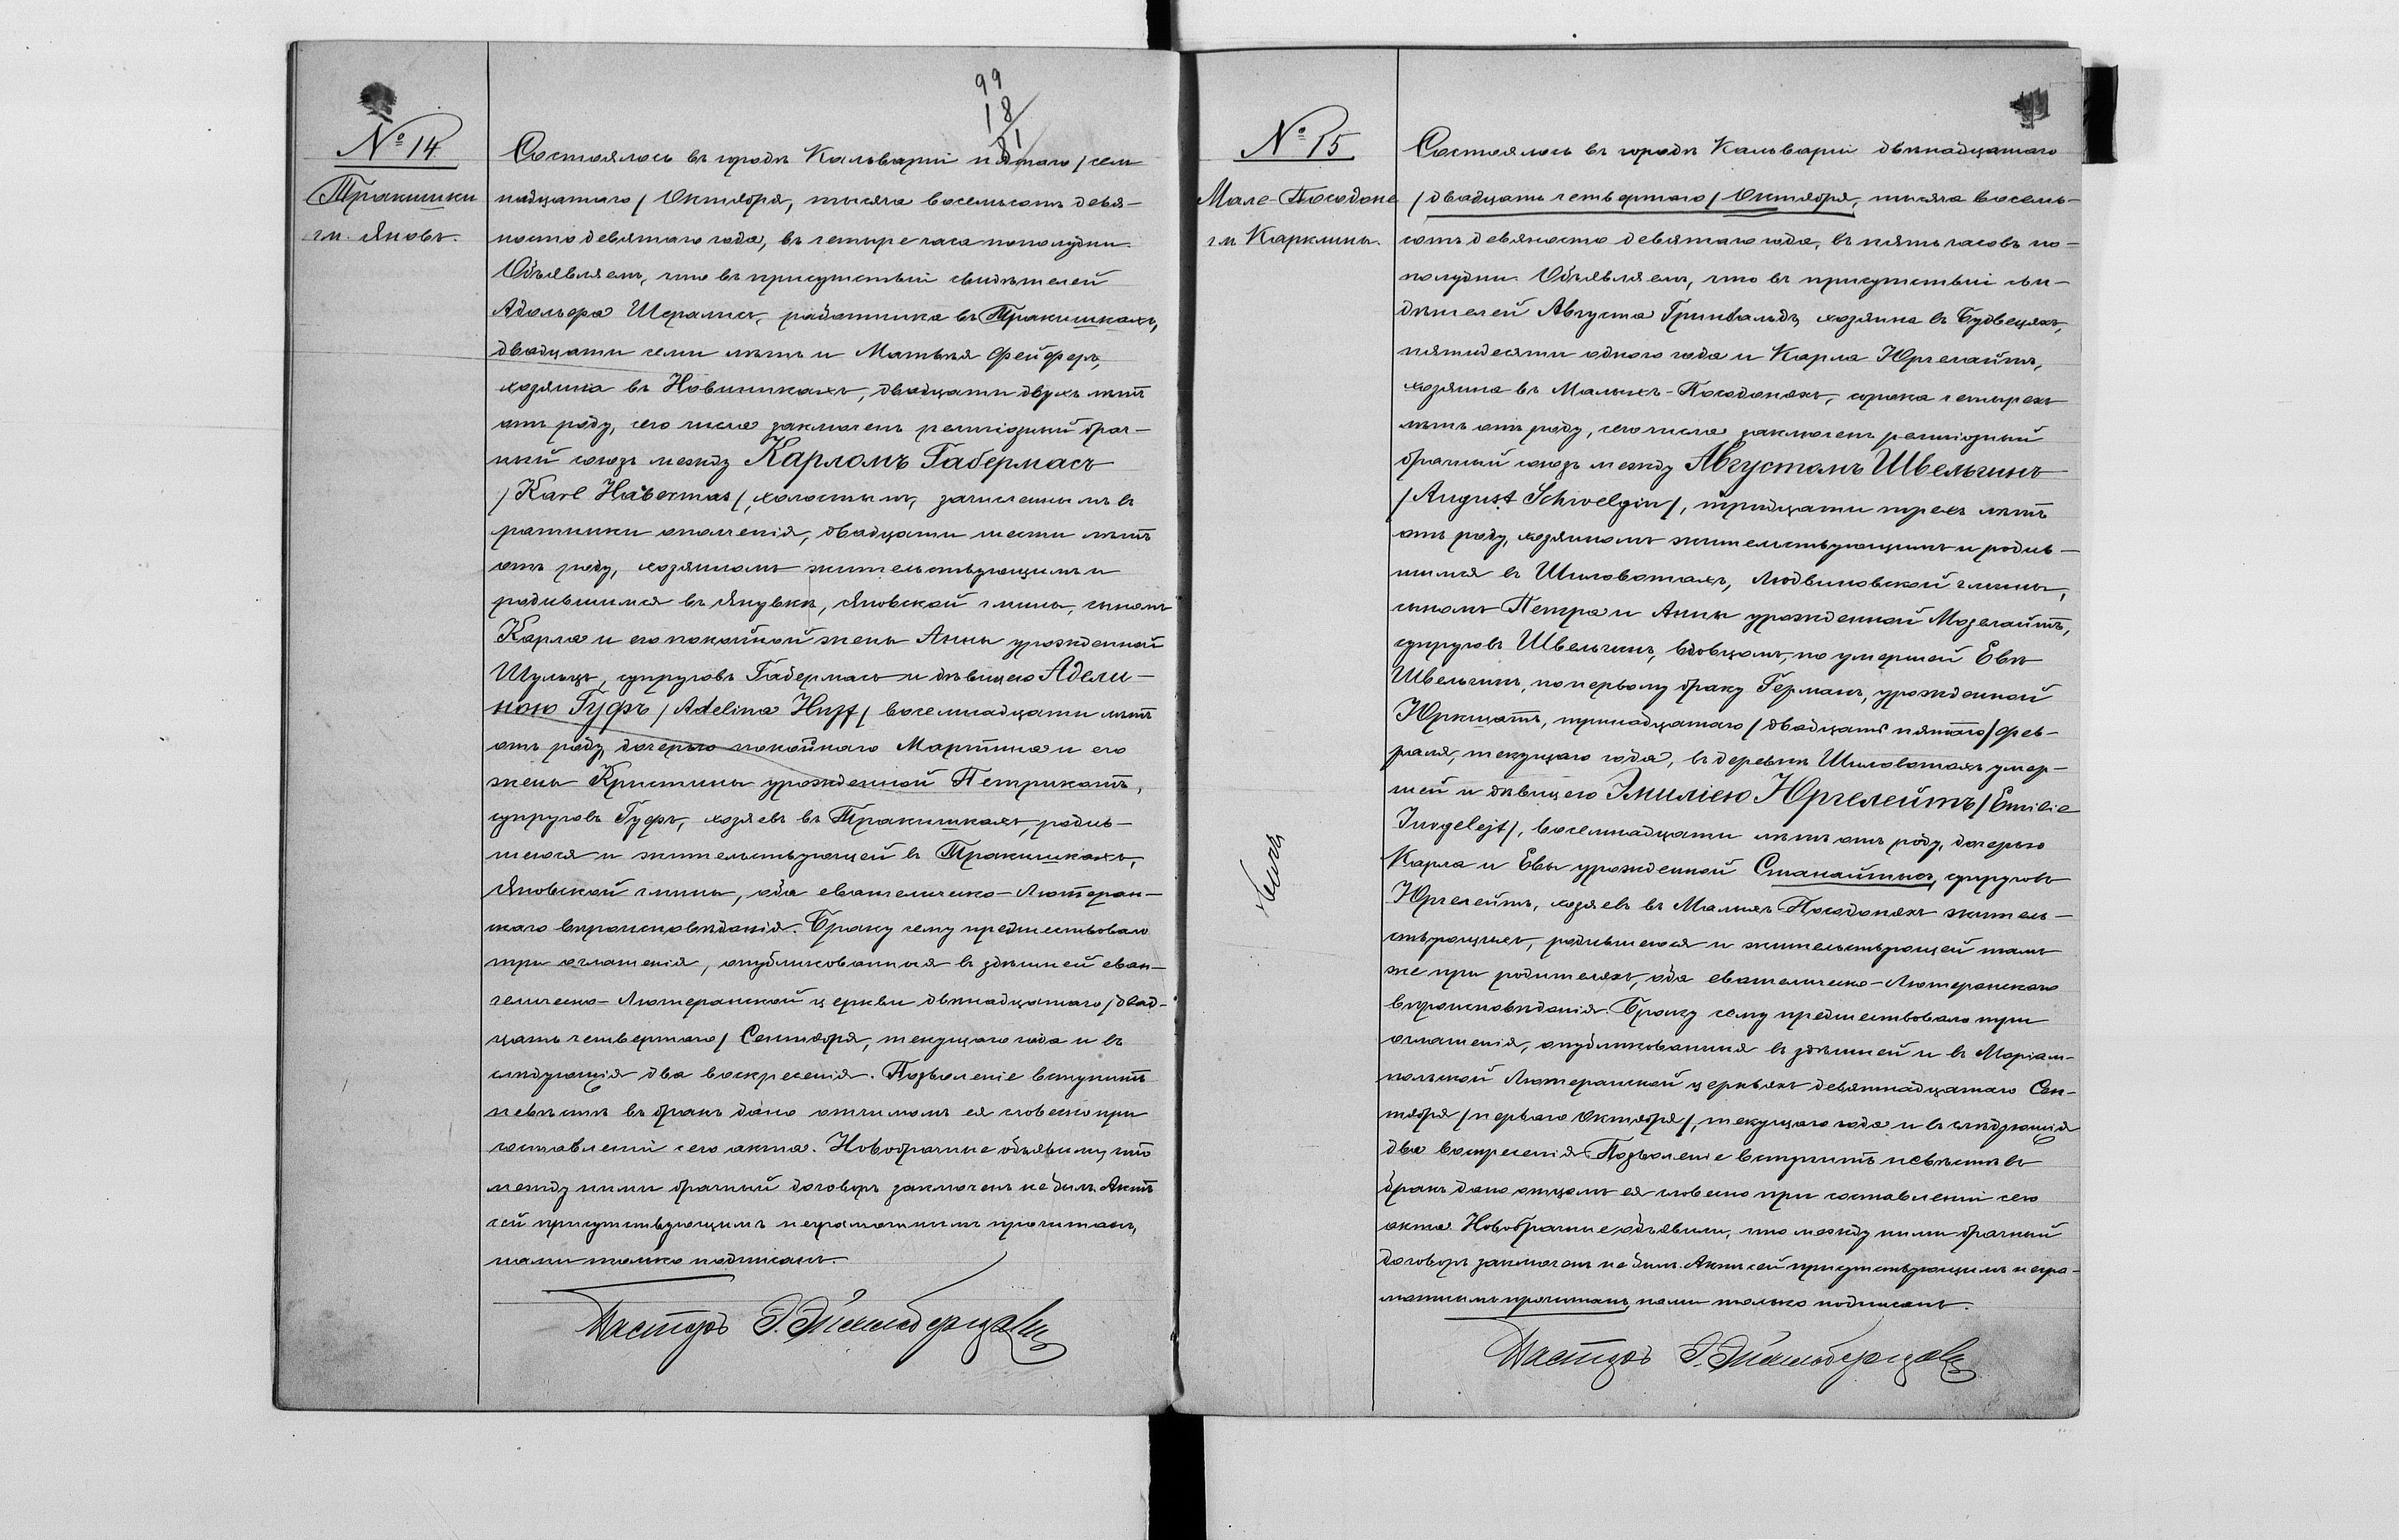 99
18
81
№ 14
Тракишки
гм. Яновъ.
Состоялось въ городѣ Кальваріи пятаго /сем
надцатаго/ Октября, тысяча восемьсотъ девя-
носто девятаго года, въ четыре часа пополудни.
Объявляемъ, что въ присутствіи свидѣтелей
Адольфа Шералисъ, работника въ Тракишкахъ,
двадцати семи лѣтъ и Матвѣя Фейферъ,
хозяина въ Новиникахъ, двадцати двухъ лѣтъ
отъ роду, сего числа заключенъ религіозный брач-
ный союзъ между Карломъ Габермасъ
/Karl Habermas/, холостымъ, зачисленнымъ въ
ратники ополченія, двадцати шести лѣтъ
отъ роду, хозяиномъ жительствующимъ и
родившимся въ Янувкѣ, Яновской гмины, сыномъ
Карла и его покойной жены Анны урожденной
Шульцъ, супруговъ Габермасъ и дѣвицею Адели-
ною Гуфъ /Adelina Huff/ восемнадцати лѣтъ
отъ роду, дочерью покойнаго Мартина и его
жены Кристины урожденной Петрикатъ,
супруговъ Гуфъ, хозяевъ въ Тракишкахъ, родив-
шеюся и жительствующей въ Тракишкахъ,
Яновской гмины, оба евангелическо-Лютеран-
скаго вѣроисповѣданія. Браку сему предшествовало
три оглашенія, опубликованныя въ здѣшней еван-
гелическо-Лютеранской церкви двѣнадцатаго /двад-
цать четвертаго/ Сентября, текущаго года и въ
слѣдующія два воскресенія. Позволеніе вступить
невѣстѣ въ бракъ дано отчимомъ ея словесно при
составленіи сего акта. Новобрачные объявили, что
между ними брачный договоръ заключенъ не былъ. Актъ
сей присутствующимъ неграмотнымъ прочитанъ,
нами только подписанъ.
Пасторъ
№ 15
Мале-Посодоне
гм. Карклины.
Состоялось въ городѣ Кальваріи двѣнадцатаго
/двадцать четвертаго/ Октября, тысяча восемь-
сотъ девяносто девятаго года, въ пять часовъ по-
полудни. Объявляемъ, что въ присутствіи сви-
дѣтелей Августа Гринвальдъ, хозяина въ Будвецяхъ,
пятидесяти одного года и Карла Юргелайтъ,
хозяина въ Малыхъ-Посодоняхъ, сорока четырехъ
лѣтъ отъ роду, сего числа заключенъ религіозный
брачный союзъ между Августомъ Швельгинъ
/August Schwelgin/, тридцати трехъ лѣтъ
отъ роду, хозяиномъ жительствующимъ и родив-
шимся въ Шиловотахъ, Людвиновской гмины,
сыномъ Петра и Анны урожденной Мозелайтъ,
супруговъ Швельгинъ, вдовцомъ, по умершей Евѣ
Швельгинъ, по первому браку Германъ, урожденной
Юркшатъ, тринадцатаго /двадцать пятаго/ Фев-
раля, текущаго года, въ деревнѣ Шиловотахъ умер-
шей и дѣвицею Эмиліею Юргелейтъ /Emilie
Jurgelejt/, восемнадцати лѣтъ отъ роду, дочерью
Карла и Евы урожденной Станайтисъ, супруговъ
Юргелейтъ, хозяевъ въ Малыхъ Посодоняхъ житель-
ствующихъ, родившеюся и жительствующей тамъ
же при родителяхъ, оба евангелическо-Лютеранскаго
вѣроисповѣданія. Браку сему предшествовало три
оглашенія, опубликованныя въ здѣшней и въ Маріам-
польской Лютеранской церквяхъ девятнадцатаго Сен-
тября /перваго Октября/, текущаго года и въ слѣдующія
два воскресенія. Позволеніе вступить невѣстѣ въ
бракъ дано отцомъ ея словесно при составленіи сего
акта. Новобрачные объявили, что между ними брачный
договоръ заключенъ не былъ. Актъ сей присутствующимъ негра-
мотнымъ прочитанъ, нами только подписанъ.
Пасторъ